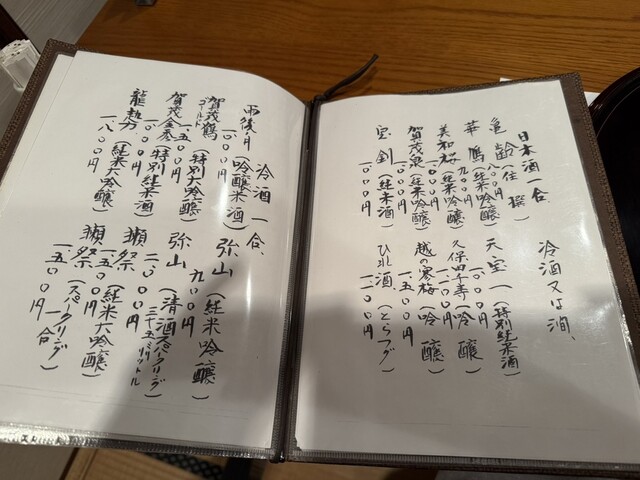 日本酒一合、
冷酒又は潤、
亀齢（佳撰）
八〇〇円
華鳩（純米吟醸）
九〇〇円
美和桜（純米吟醸）
一〇〇〇円
賀茂泉（純米吟醸）
一〇〇〇円
宝剣（純米酒）
一〇〇〇円
天宝一（特別純米酒）
一〇〇〇円
久保田千寿（吟醸）
一一〇〇円
越の寒梅（吟醸）
一、五〇〇円
ひれ酒（とらフグ）
一一〇〇円
冷酒一合、
雨後ノ月（吟醸純米酒）
一〇〇〇円
賀茂鶴ゴールド（特別大吟醸）
一、五〇〇円
賀茂金秀（特別純米酒）
一〇〇〇円
龍勢（純米大吟醸）
一、八〇〇円
弥山（純米吟醸）
九〇〇円
弥山（清酒スパークリング）
二〇〇〇円
三七五ミリリットル
獺祭（純米大吟醸）
一、五〇〇円
獺祭（スパークリング一合）
一、五〇〇円